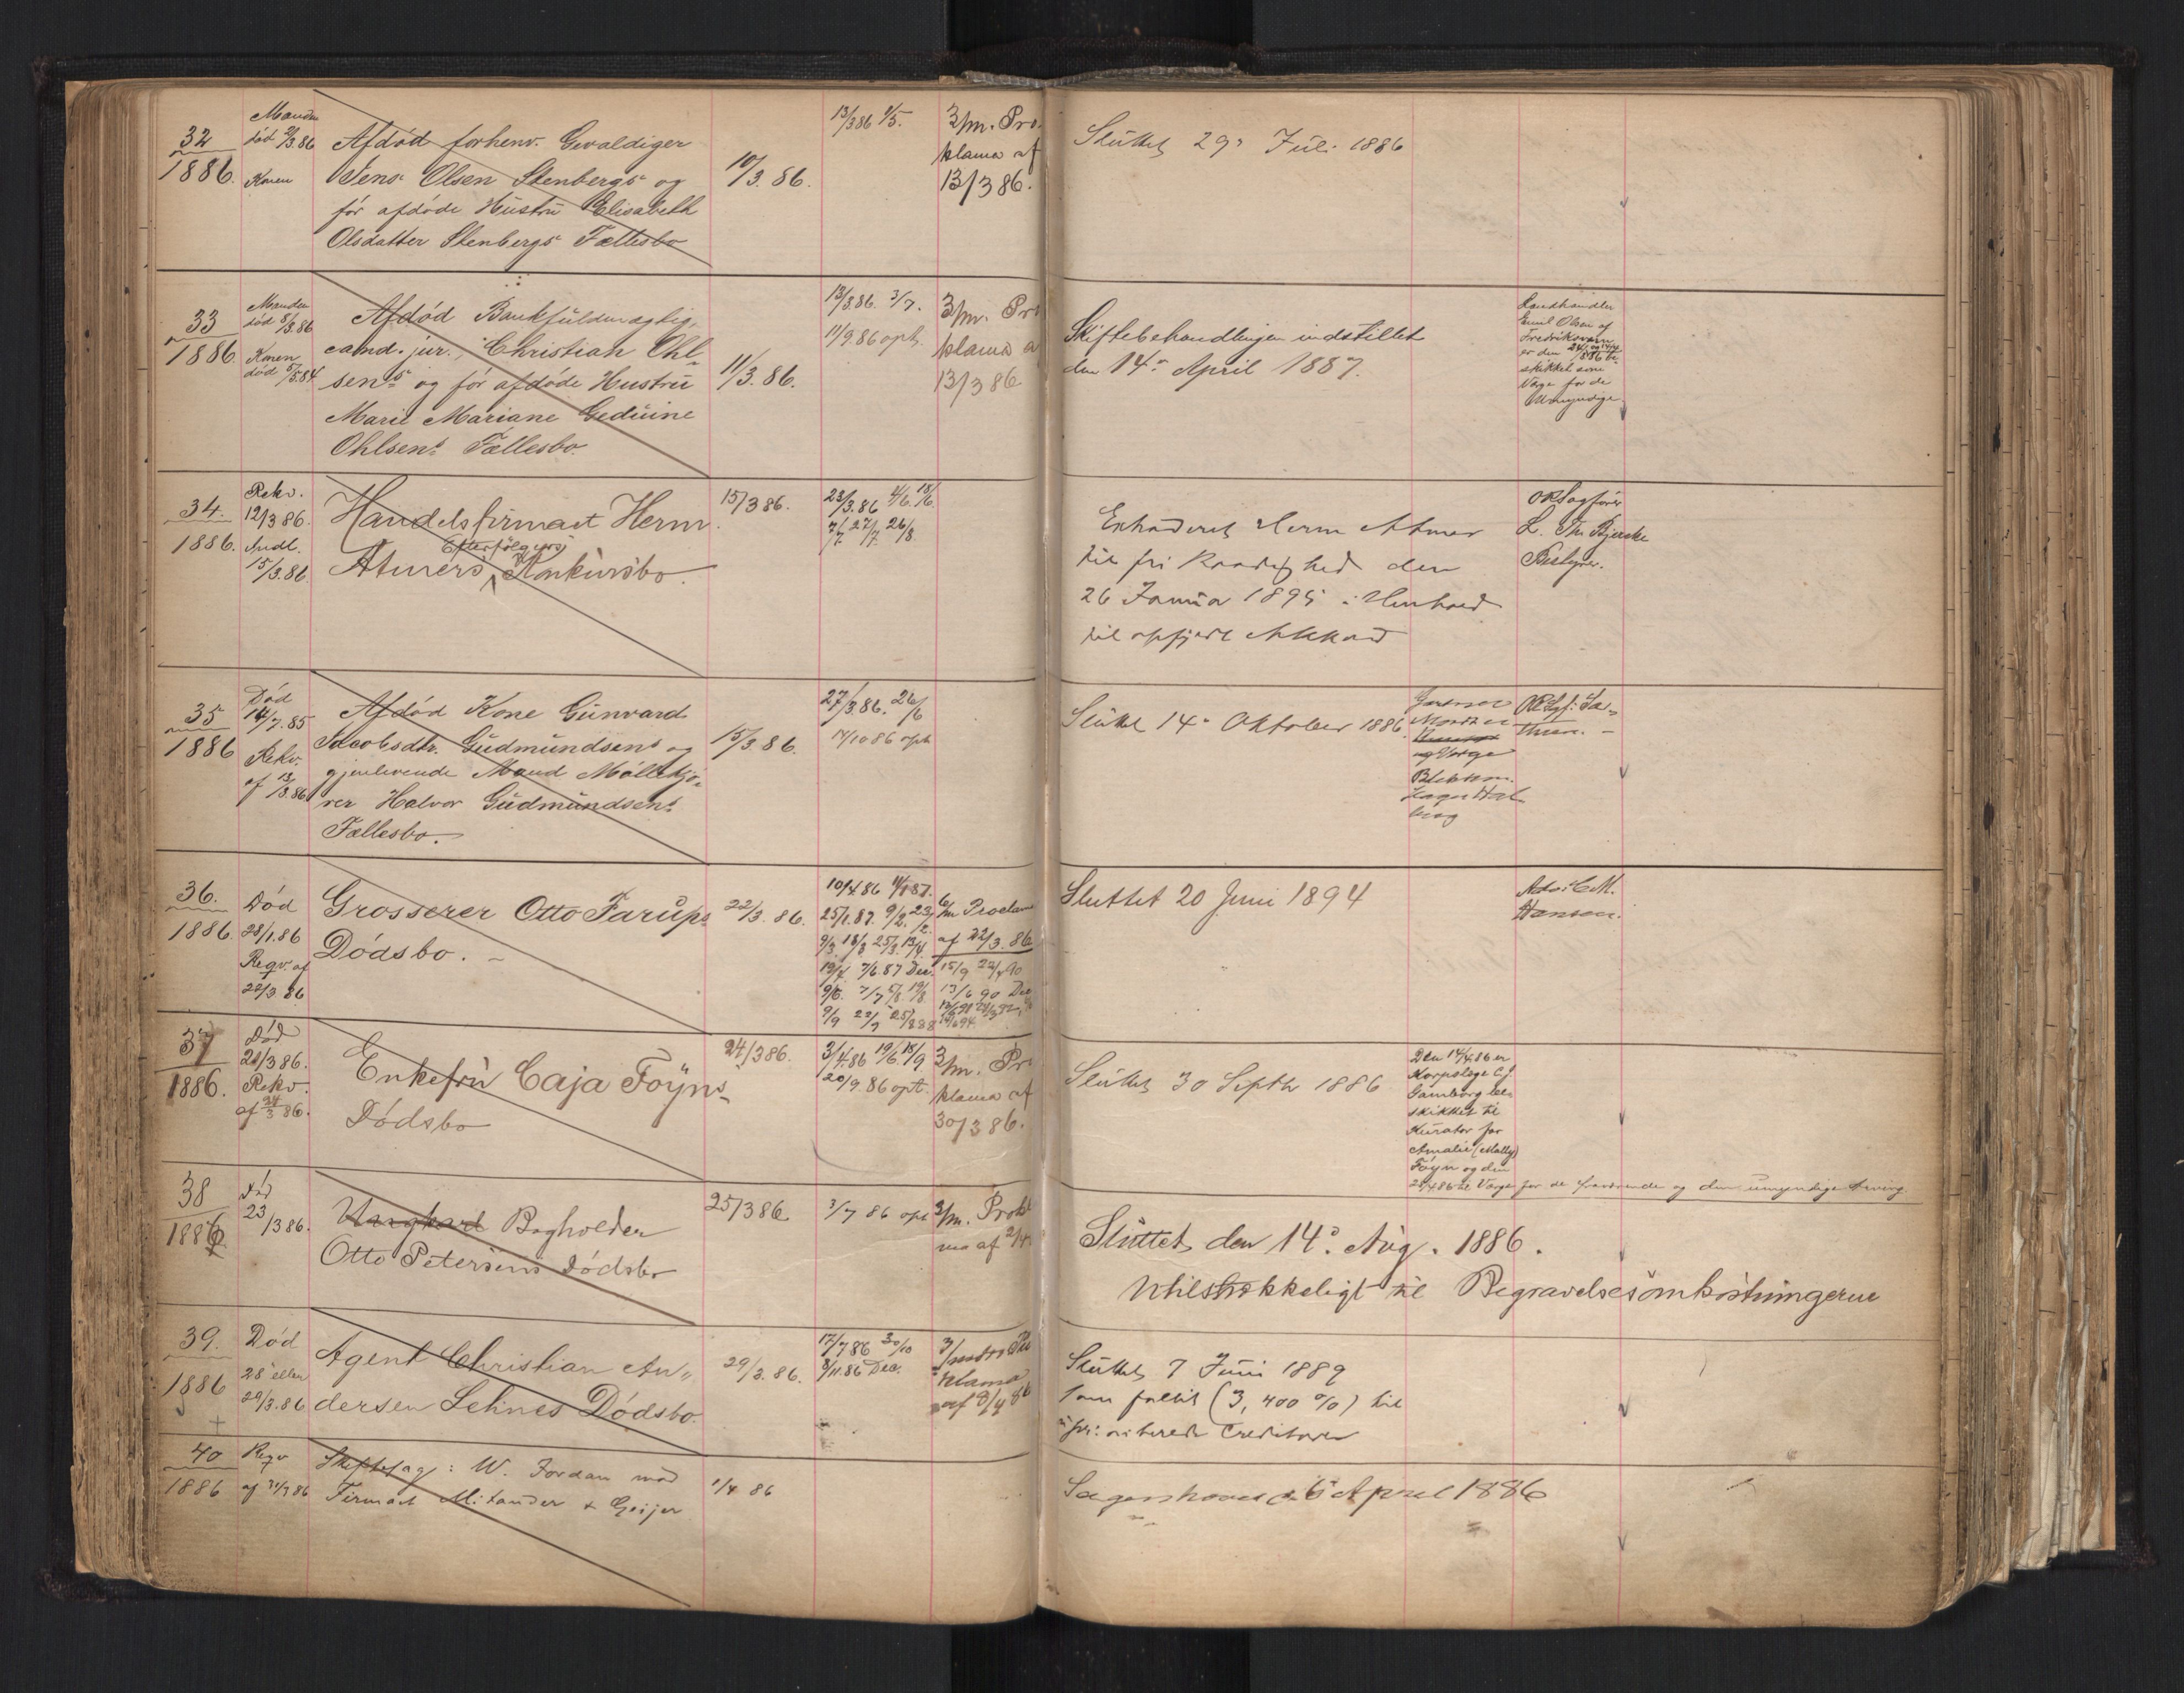 32
1886.
Manden
død 2/3.86
Konen
Afdød forhenv. Gevaldiger
Jens Olsen Stenbergs og
før afdøde Hustru Elisabeth
Olsdatter Stenbergs Fællesbo
10/3.86.
13/386 1/5.
3/m. Pro
klama af
13/3 86.
Sluttet 29 Juli 1886
33
1886.
Manden
død 8/3.86
Konen
død 5/5.84
Afdød Bankfuldmægtig,
cand. jur., Christian Ohl-
sens og før afdøde Hustru
Marie Mariane Geduine
Ohlsens Fællesbo.
11/3.86.
13/3.86. 3/7.
11/9.86 opt.
3/m. Pro
klama a
13/3 86
Skiftebehandlingen indstillet
den 14 April 1887.
Landhandler
Emil Olsen af
Fredriksværn
er den
skikket som
Værge for de
Umyndige
34.
1886.
Rekv.
12/3 86.
Indl.
15/3.86
Handelsfirmaet Herm.
Efterfølgers
Atmers Konkursbo.
15/3 86.
23/3.86 4/6. 18/6
7/7. 27/7. 26/8
Extraderet Herm Atmer
til fri Raadighed den
26 Januar 1895 i Henhold
til opfyldt Akkord
OR Sagfører
L. Th. Bjercke
Bestyrer.
35
1886
Død
14/7.85
Rekv.
af 13/3.86
Afdød Kone Gunvard
Jacobsdtr. Gudmundsens og
gjenlevende Mand Møllekjø-
rer Halvor Gudmundsens
Fællesbo.
15/3 86.
27/3.86. 26/6
14/10 86 opt
Sluttet 14 Oktober 1886.
og Værge
36.
1886.
Død
28/1.86
Reqv. af
22/3.86
Grosserer Otto Farups
Dødsbo.
22/3.86.
10/4 86 4/1 87.
25/1.87 9/2. 23/2.
9/3 18/3 25/3 13/4
6/m Proclama
af 22/3.86
Sluttet 20 Juni 1894
Adv: C M.
Hansen.
37
1886.
Død
20/3 86.
Rekv.
af 24/3 86.
Enkefru Caja Føyns
Dødsbo
24/3 86.
3/4.86 19/6. 18/9
20/9.86 opt.
3/m. Pro
klama af
30/3 86.
Sluttet 30 Septbr 1886
Den 14/4.86 er
Korpslæge C.J.
Gamborg be-
skikket til
Kurator for
Amalie (Mally)
Føyn og den
28/4 86 til Værge for de fraværende og den umyndige Arving.
38
1886
Død
23/3 86.
Bogholder
Otto Petersens Dødsbo
25/3 86
3/7 86 opt
3/m. Prokla
ma af 2/4
Sluttet den 14 Aug. 1886.
Utilstrækkeligt til Begravelsesomkostningerne
39.
1886
Død
28 eller
29/3.86
Agent Christian An-
dersen Lehnes Dødsbo.
29/3.86.
17/7 86 30/10
8/11.86 Dec.
klama
af 8/4 86
Sluttet 7 Juni 1889
som fallit (3,400 %) til
Creditorer
40
1886
Reqv
af 31/3 86
Skiftesag: W. Jordan mod
Firmaet Mitander & Geijer
1/4 86
Sagen hævet d. 6 April 1886